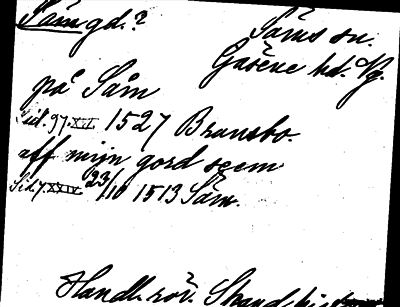 Såm gd.?
Såms sn.
Gäsene hd. Vg.
på Såm
sid. 97. XII 1527 Bransbo.
aff mijn gord seem
Sid 7. XXIX 23/10 1513 Såm.
Handl. rör. Skand. hist.